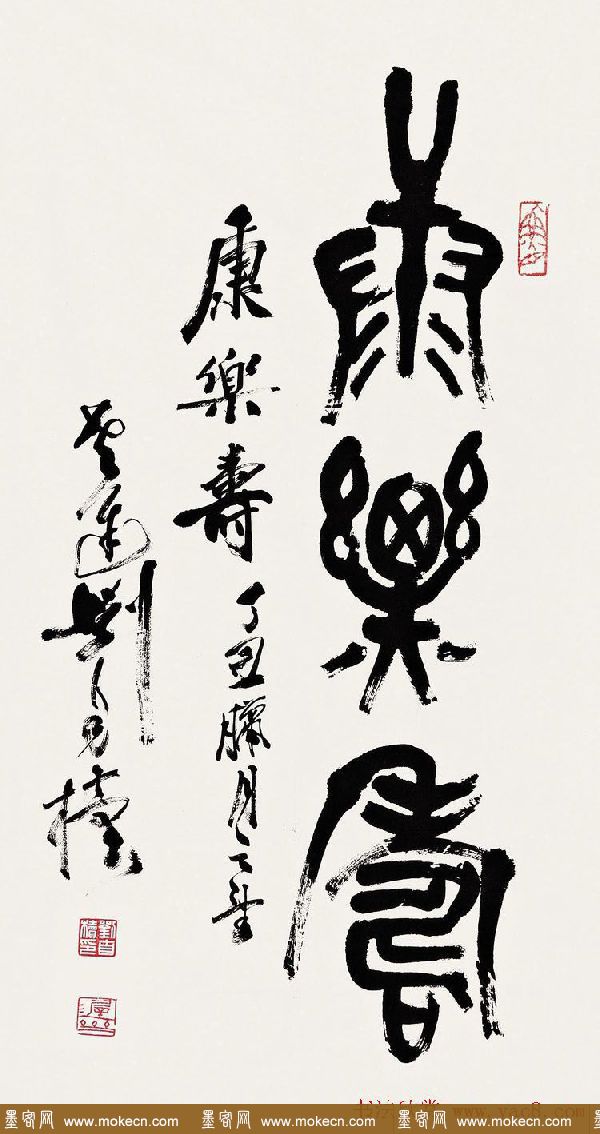 康樂壽
康樂壽 丁丑臘月之望
劉自櫝
www.yac8.com
墨客网 www.mokecn.com 墨客网 www.mokecn.com 墨客网 www.mokecn.com